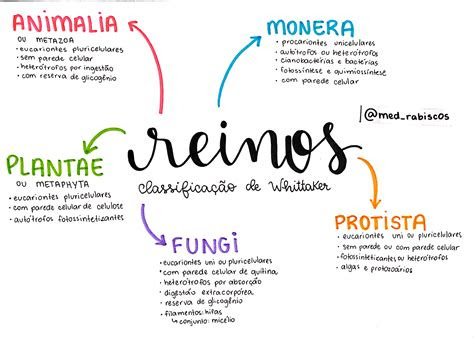 ANIMALIA
OU METAZOA
• eucariontes pluricelulares
• sem parede celular
• heterótrofos por ingestão
• com reserva de glicogênio
MONERA
• procariontes unicelulares
• autótrofos ou heterótrofos
• cianobactérias e bactérias
• fotossíntese e quimiossíntese
• com parede celular
@med_rabiscos
reinos
classificação de Whittaker
PLANTAE
OU METAPHYTA
• eucariontes pluricelulares
• com parede celular de celulose
• autótrofos fotossintetizantes
FUNGI
• eucariontes uni ou pluricelulares
• com parede celular de quitina
• heterótrofos por absorção
• digestão extracorpórea
• reserva de glicogênio
• filamentos: hifas
↳ conjunto: micélio
PROTISTA
• eucariontes uni ou pluricelulares
• sem parede ou com parede celular
• fotossintetizantes ou heterótrofos
• algas e protozoários